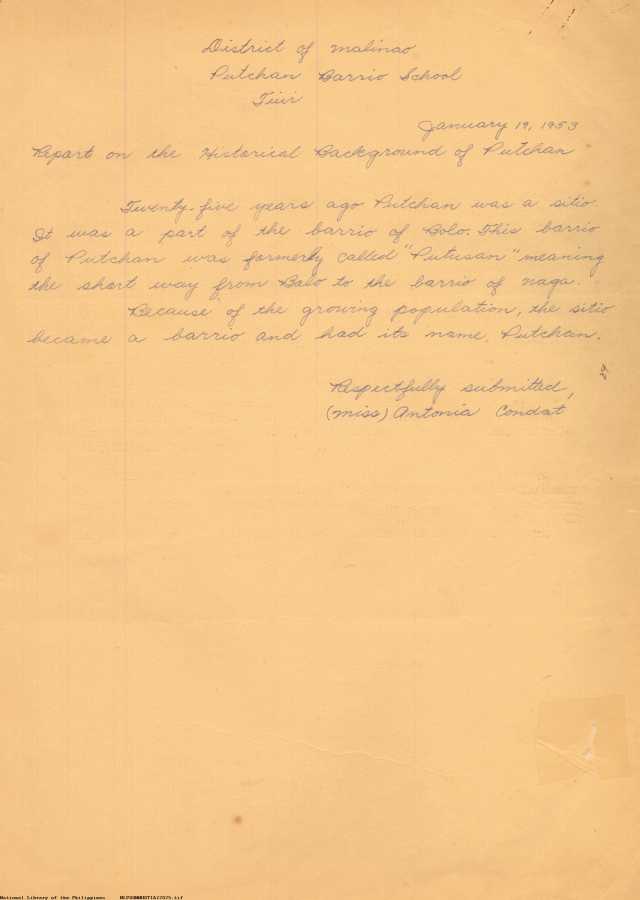 District of Malinao
Putchan Barrio School
Tiwi
January 19, 1953
Report on the Historical Background of Putchan
Twenty-five years ago Putchan was a sitio.
It was a part of the barrio of Bolo. This barrio
of Putchan was formerly called "Putusan" meaning
the short way from Bolo to the barrio of Naga.
Because of the growing population, the sitio
became a barrio and had its name, Putchan.
Respectfully submitted,
(Miss) Antonia Condat
National Library of the Philippines